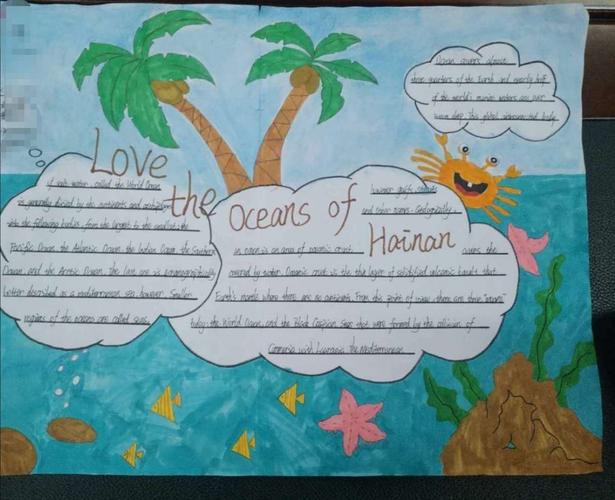 Love the Oceans of Hainan
Ocean covers almost
three quarters of the Earth and nearly half
of the world's marine waters are over
deep. this global, interconnected body
of salt water, called the World Ocean
is generally divided by the continents and
with the following bodies, from the largest to the smallest: the
Pacific Ocean, the Atlantic Ocean, the Indian Ocean, the Southern
Ocean, and the Arctic Ocean, the last one is
better described as a mediterranean sea, however. Smaller
regions of the oceans are called seas,
gulfs, straits
and other names. Geologically,
an ocean is an area of oceanic crust
covered by water. Oceanic crust is the thin layer of solidified volcanic basalt that
covers the
Earth's mantle where there are no continents. From this point of view, there are three "oceans"
today: the World Ocean, and the Black Caspian Seas that were formed by the collision of
with Laurasia. The Mediterranean